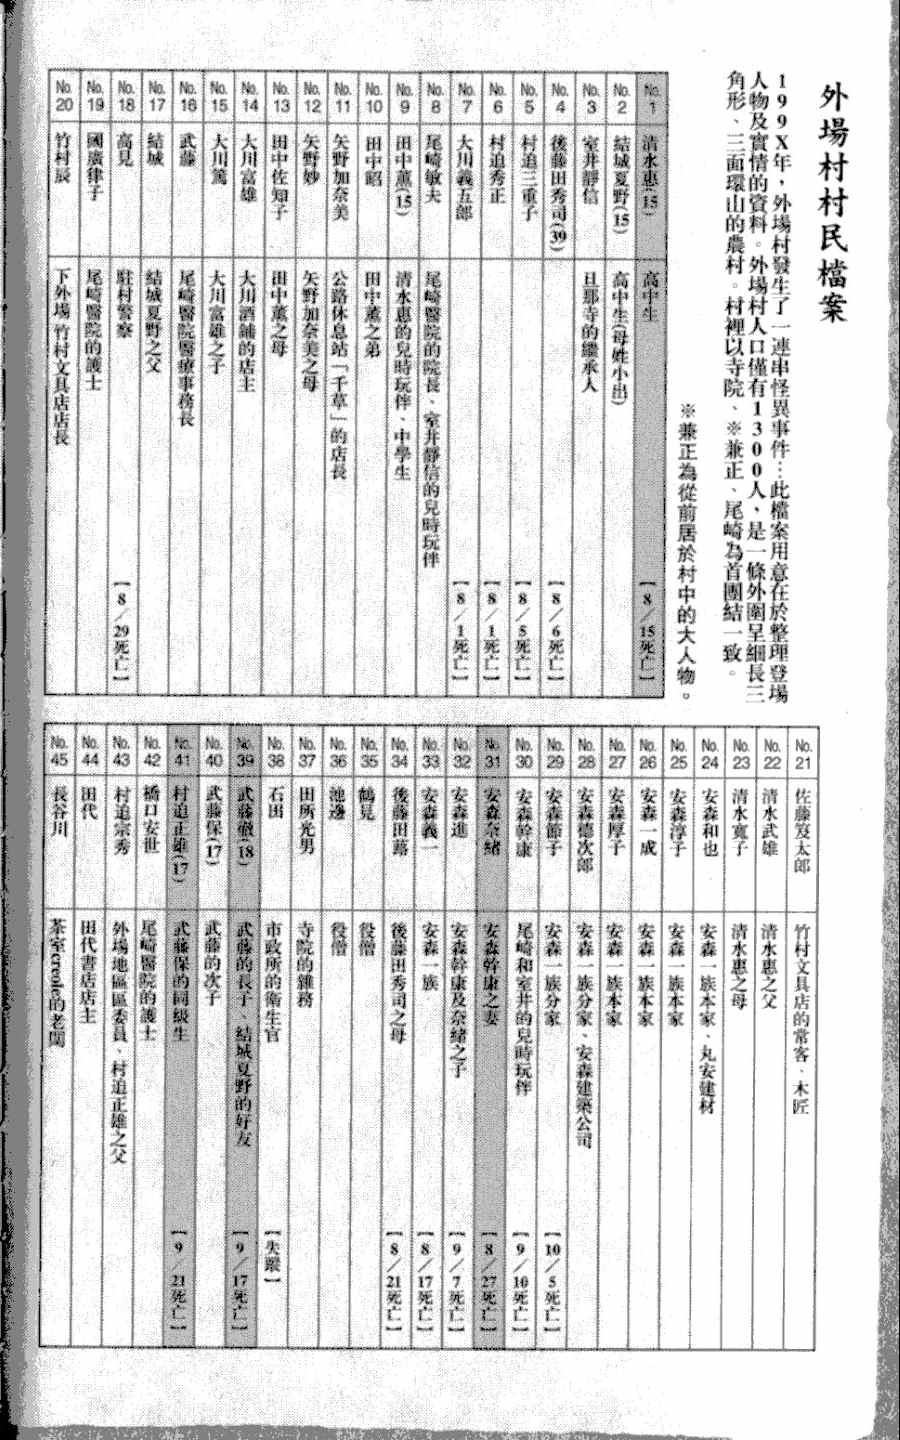 外場村村民檔案
199X年，外場村發生了一連串怪異事件…此檔案用意在於整理登場
人物及實情的資料。外場村人口僅有1300人，是一條外圍呈細長三
角形、三面環山的農村。村裡以寺院、※兼正、尾崎為首團結一致。
※兼正為從前居於村中的大人物。
No.1 清水惠(15) 高中生 【8／15死亡】
No.2 結城夏野(15) 高中生(母姓小出)
No.3 室井靜信 旦那寺的繼承人
No.4 後藤田秀司(39) 【8／6死亡】
No.5 村迫三重子 【8／5死亡】
No.6 村迫秀正 【8／1死亡】
No.7 大川義五郎 【8／1死亡】
No.8 尾崎敏夫 尾崎醫院的院長、室井靜信的兒時玩伴
No.9 田中薰(15) 清水惠的兒時玩伴、中學生
No.10 田中昭 田中薰之弟
No.11 矢野加奈美 公路休息站「千草」的店長
No.12 矢野妙 矢野加奈美之母
No.13 田中佐知子 田中薰之母
No.14 大川富雄 大川酒鋪的店主
No.15 大川篤 大川富雄之子
No.16 武藤 尾崎醫院醫療事務長
No.17 結城 結城夏野之父
No.18 高見 駐村警察 【8／29死亡】
No.19 國廣律子 尾崎醫院的護士
No.20 竹村辰 下外場 竹村文具店店長
No.21 佐藤笈太郎 竹村文具店的常客、木匠
No.22 清水武雄 清水惠之父
No.23 清水寬子 清水惠之母
No.24 安森和也 安森一族本家、丸安建材
No.25 安森淳子 安森一族本家
No.26 安森一成 安森一族本家
No.27 安森厚子 安森一族本家
No.28 安森德次郎 安森一族分家、安森建築公司
No.29 安森節子 安森一族分家 【10／5死亡】
No.30 安森幹康 尾崎和室井的兒時玩伴 【9／10死亡】
No.31 安森奈緒 安森幹康之妻 【8／27死亡】
No.32 安森進 安森幹康及奈緒之子 【9／7死亡】
No.33 安森義一 安森一族 【8／17死亡】
No.34 後藤田蕗 後藤田秀司之母 【8／21死亡】
No.35 鶴見 役僧
No.36 池邊 役僧
No.37 田所光男 寺院的雜務
No.38 石田 市政所的衛生官 【失蹤】
No.39 武藤徹(18) 武藤的長子、結城夏野的好友 【9／17死亡】
No.40 武藤保(17) 武藤的次子
No.41 村迫正雄(17) 武藤保的同級生 【9／21死亡】
No.42 橋口安世 尾崎醫院的護士
No.43 村迫宗秀 外場地區區委員、村迫正雄之父
No.44 田代 田代書店店主
No.45 長谷川 茶室creole的老闆